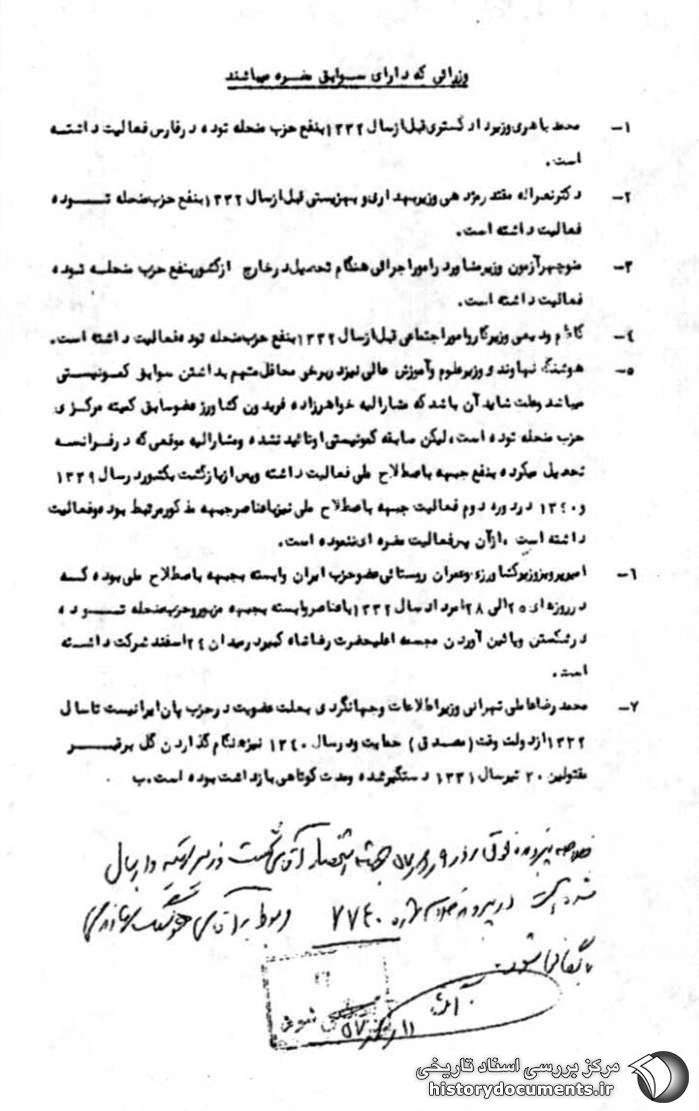 وزرائی که دارای سوابق مضره میباشند
۱- محمد باهری وزیر دادگستری قبل از سال ۱۳۳۲ بنفع حزب منحله توده در فارس فعالیت داشته
است.
۲- دکتر نصراله مقتدر مژدهی وزیر بهداری و بهزیستی قبل از سال ۱۳۳۲ بنفع حزب منحله تـــوده
فعالیت داشته است.
۳- منوچهر آزمون وزیر مشاور در امور اجرائی هنگام تحصیل در خارج از کشور بنفع حزب منحلـه توده
فعالیت داشته است.
۴- کاظم ودیعی وزیر کار و امور اجتماعی قبل از سال ۱۳۳۲ بنفع حزب منحله توده فعالیت داشته است.
۵- هوشنگ نهاوندی وزیر علوم و آموزش عالی نیز در برخی محافل متهم بداشتن سوابق کمونیستی
میباشد و علت شاید آن باشد که مشارالیه خواهرزاده فریدون کشاورز عضو سابق کمیته مرکزی
حزب منحله توده است، لیکن سابقه کمونیستی او تائید نشده و مشارالیه موقعی که در فرانسه
تحصیل میکرده بنفع جبهه باصطلاح ملی فعالیت داشته و پس از بازگشت بکشور در سال ۱۳۳۹
و ۱۳۴۰ در دوره دوم فعالیت جبهه باصطلاح ملی نیز با عناصر جبهه مذکور مرتبط بوده و فعالیت
داشته است ، از آن پس فعالیت مضره ای ننموده است.
۶- امیر پرویز وزیر کشاورزی و عمران روستائی عضو حزب ایران وابسته بجبهه باصطلاح ملی بوده کـه
در روزهای ۲۵ الی ۲۸ امرداد سال ۱۳۳۲ با عناصر وابسته بجبهه مزبور و حزب منحله تـــوده
در شکستن و پائین آوردن مجسمه اعلیحضرت رضاشاه کبیر در میدان ۲۴ اسفند شرکت داشـته
است.
۷- محمد رضا عاملی تهرانی وزیر اطلاعات و جهانگردی بعلت عضویت در حزب پان ایرانیست تا سال
۱۳۳۲ از دولت وقت (مصدق) حمایت و در سال ۱۳۴۰ نیز هنگام گذاردن گل بر قبـــر
مقتولین ۳۰ تیر سال ۱۳۳۱ دستگیر شده و مدت کوتاهی بازداشت بوده است.ب
خلاصه پرونده فوق در روز
در پرونده خلاصه شماره ۷۷۴۰ مربوط به آقای هوشنگ نهاوندی
بایگانی شود.
مرکز بررسی اسناد تاریخی
historydocuments.ir